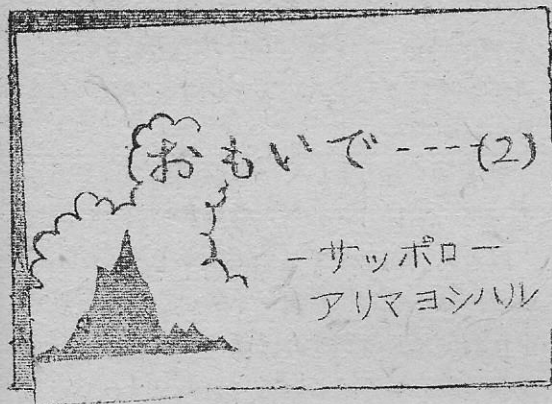 おもいで----(2)
ーサッポロー
アリマヨシハル